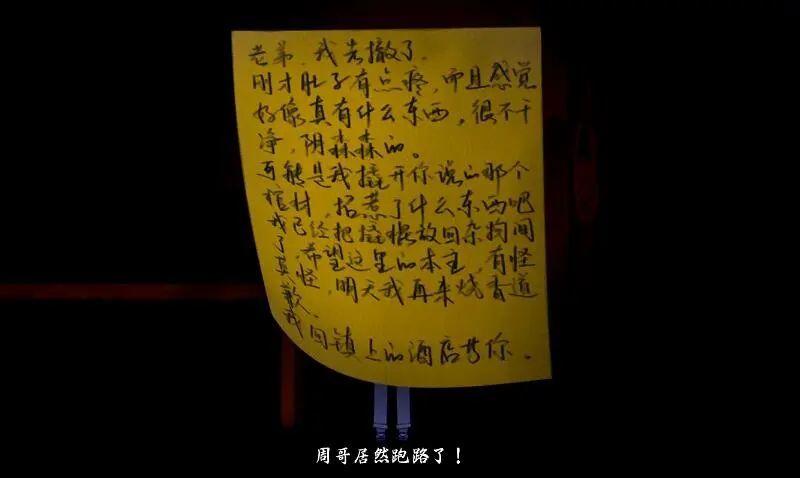 老弟，我先撤了．
刚才肚子有点疼，而且感觉
好像真有什么东西，很不干
净，阴森森的。
可能是我撬开你说的那个
棺材，招惹了什么东西吧
我已经把撬棍放回杂物间
了，希望这里的本主，有怪
莫怪，明天我再来烧香道
歉．
我回镇上的酒店等你．
周哥居然跑路了！